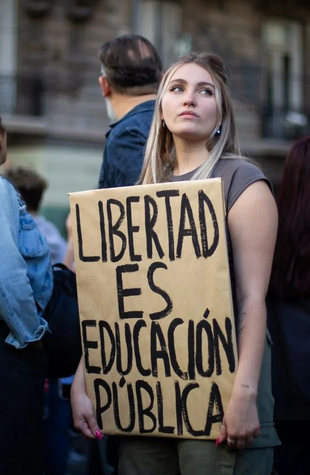 LIBERTAD
ES
EDUCACIÓN
PÚBLICA